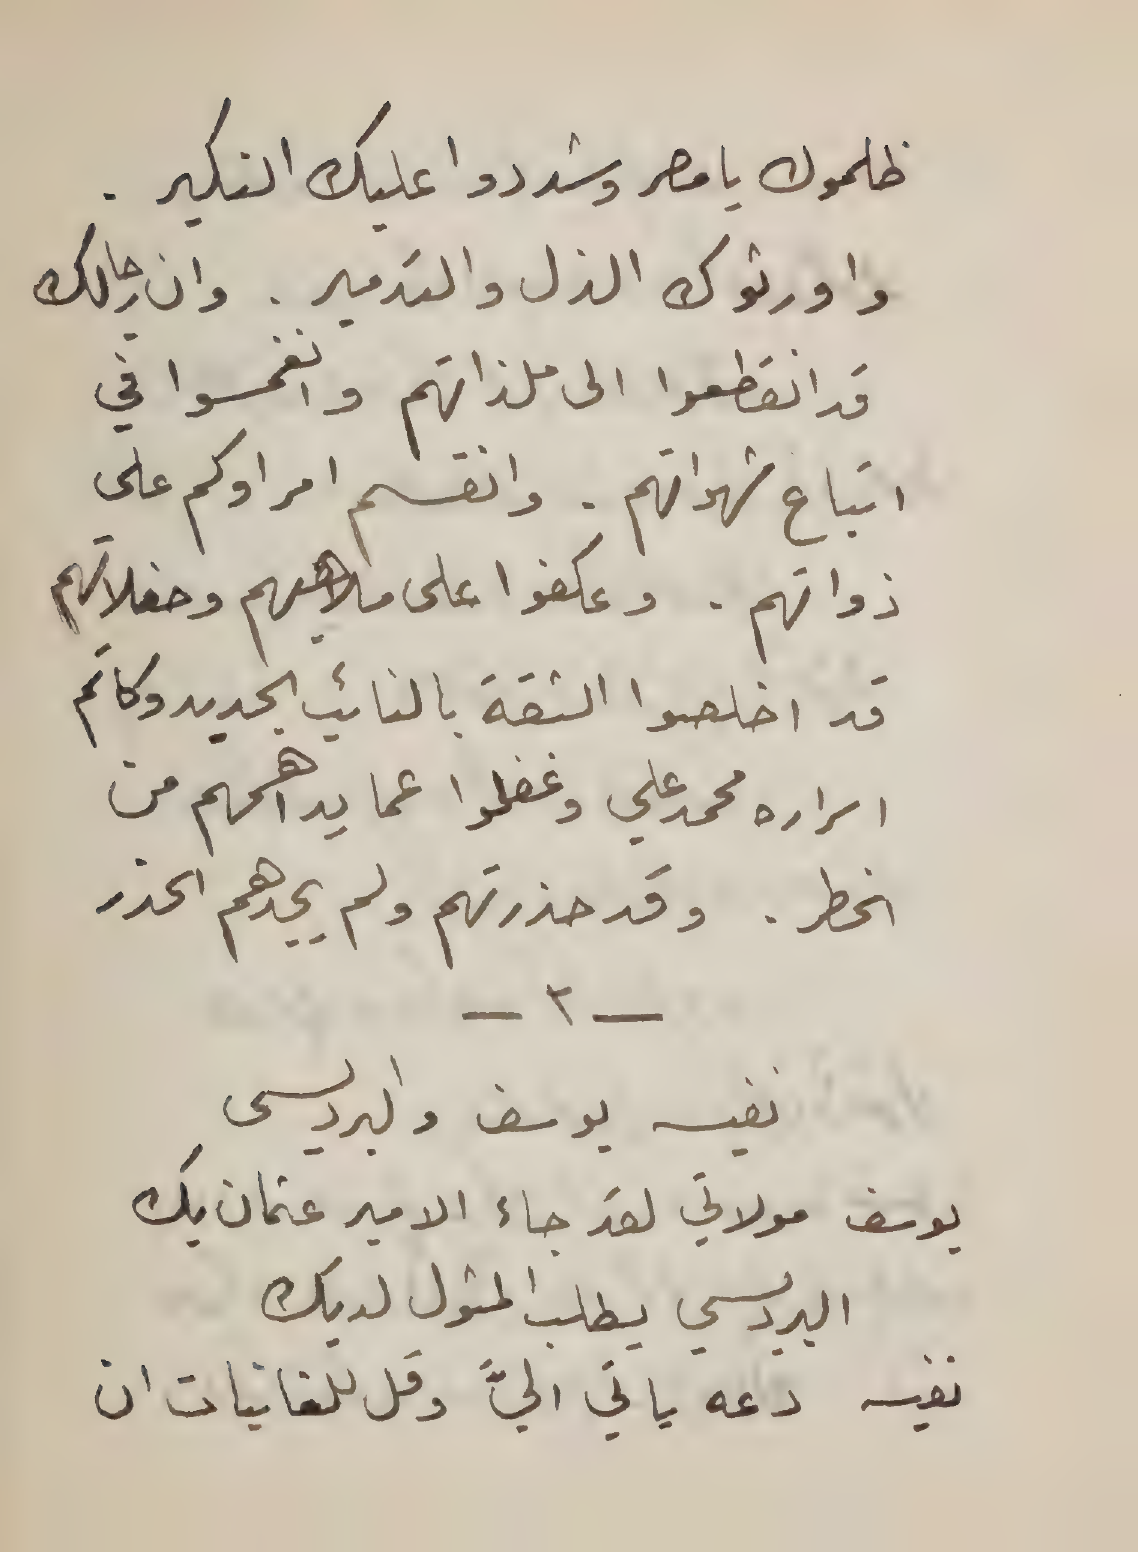 ظلموك يا مصر وشددوا عليك النكير .
واورثوك الذل والتدمير . وان رجالك
قد انقطعوا الى ملذاتهم وانغمسوا في
اتباع شهواتهم . وانقسم امراوكم على
ذواتهم . وعكفوا على ملاهيهم وحفلاتهم
قد اخلصوا الثقة بالنائب الجديد وكاتم
اسراره محمد علي وغفلوا عما يداهمهم من
الخطر . وقد حذرتهم ولم يجدهم الحذر
— ٢ —
نفيسه يوسف والبرديسى
يوسف مولاتي لقد جاء الامير عثمان بك
البرديسي يطلب المثول لديك
نفيسه دعه ياتي اليَّ وقل للغانيات ان